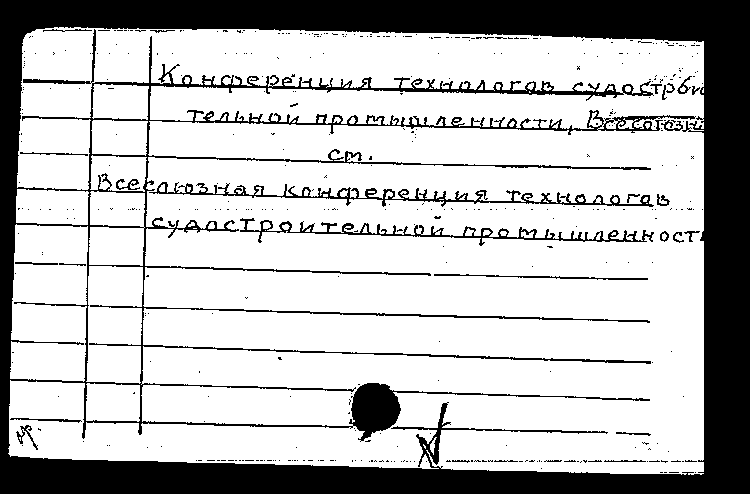 Конференция технологов судострои
тельной промышленности, Всесоюзн
см.
Всесоюзная конференция технологов
судостроительной промышленност